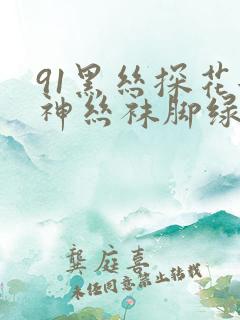 91黑丝探花
神丝袜脚绿
龚庭喜
未经同意禁止转载